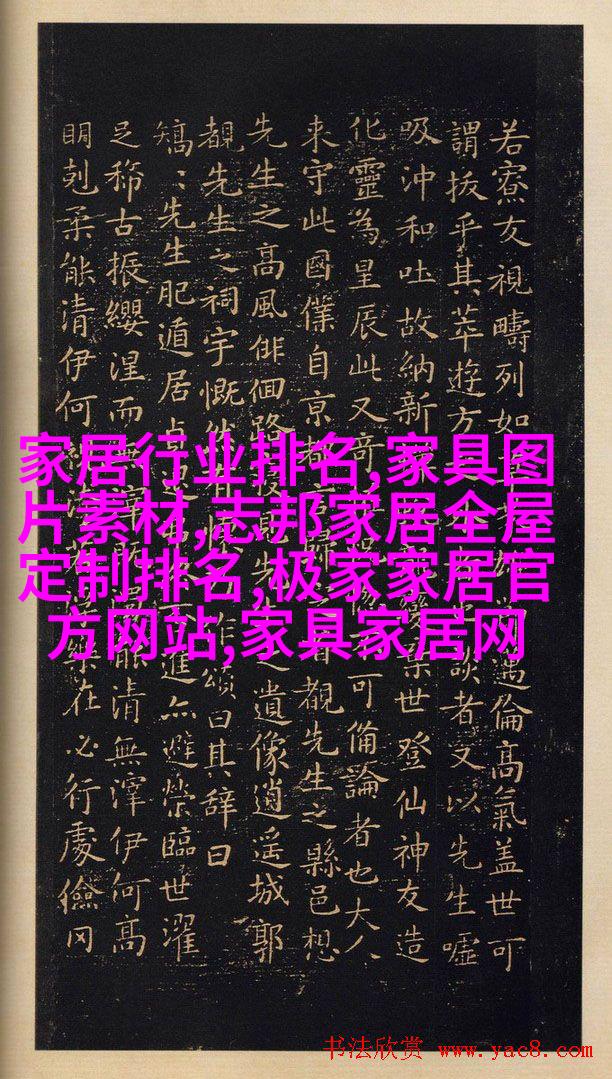 若寮友視疇列如
邁倫高氣蓋世可
謂拔乎其萃遊方
談者又以先生噓
吸沖和吐故納新
變棄世登仙神友造
化靈為星辰此又奇
可備論者也大人
来守此國僕自京都
覩先生之縣邑想
先生之高風俳佪路
之遺像逍遥城郭
覩先生之祠宇慨然有
作頌曰其辭曰
矯〻先生肥遁居貞
進亦避榮臨世濯
足稀古振纓涅而無
能清無滓伊何高
明剋柔能清伊何
樂在必行處儉罔
家居行业排名,家具图
片素材,志邦家居全屋
定制排名,极家家居官
方网站,家具家居网
书法欣赏 www.yac8.com